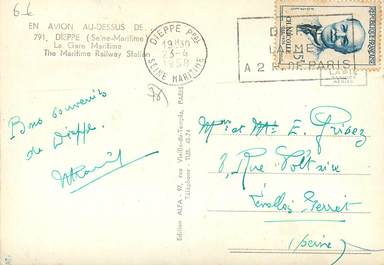 6-6
EN AVION AU-DESSUS DE...
791. DIEPPE (Seine-Maritime
La Gare Maritime
The Maritime Railway Station
DIEPPE PPAL
19H30
3-6
1958
SEINE MARITIME
DIE
LA ME
A 2 H DE PARIS
Bons souvenirs
de Dieppe.
Edition ALFA - 97, rue Vieille-du-Temple, PARIS
Téléphone : TUR.
Mme et Mr E.
8, Rue Voltaire
Levallois Perret
(Seine)